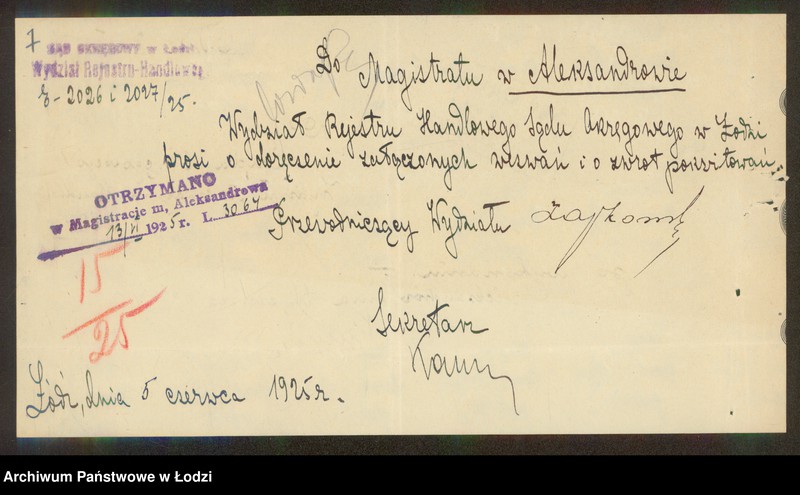 7
SĄD OKRĘGOWY w Łodzi
Wydział Rejestru-Handlowego
Z-2026 i 2027/25.
Do Magistratu w Aleksandrowie
Wydział Rejestru Handlowego Sądu Okręgowego w Łodzi
prosi o doręczenie załączonych wezwań i o zwrot pokwitowań.
OTRZYMANO
w Magistracie m. Aleksandrowa
13/VI 1925 r. L. 3064
Przewodniczący Wydziału
15
25
Sekretarz
Łódź, dnia 5 czerwca 1925 r.
Archiwum Państwowe w Łodzi